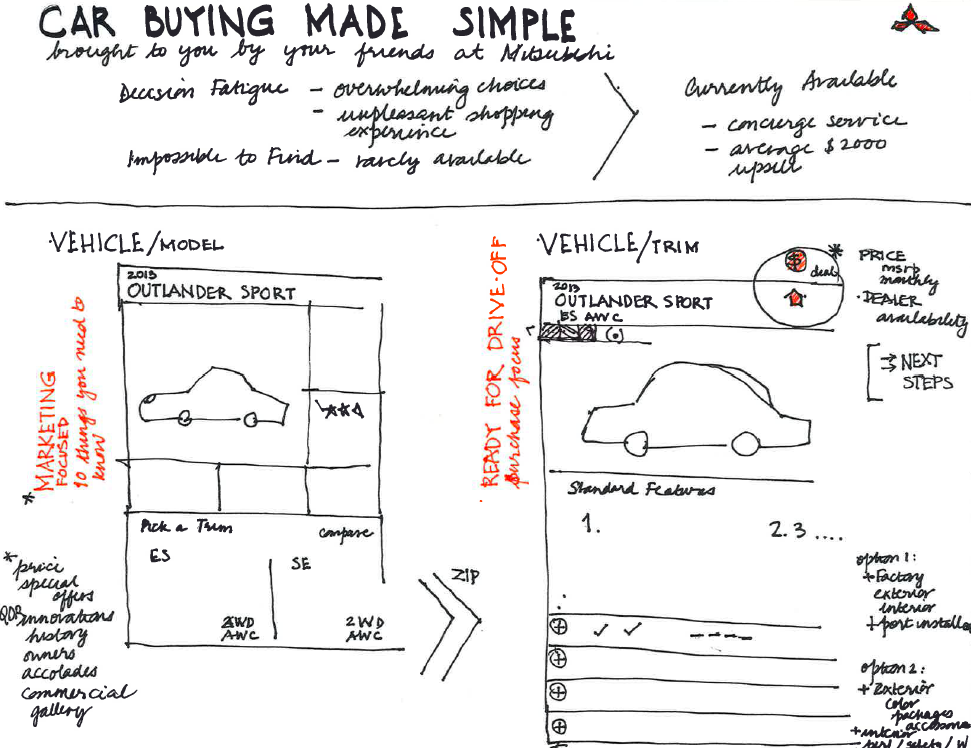 CAR BUYING MADE SIMPLE
brought to you by your friends at Mitsubishi
Decision Fatigue - overwhelming choices
- unpleasant shopping
experience
Impossible to Find - rarely available
Currently Available
- concierge service
- average $2000
upsell
VEHICLE/MODEL
2013
OUTLANDER SPORT
* MARKETING
FOCUSED
10 things you need to
know
Pick a Trim
compare
ES
SE
2WD
AWC
2WD
AWC
* price
special
offers
QDR innovations
history
owners
accolades
commercial
gallery
ZIP
VEHICLE/TRIM
READY FOR DRIVE-OFF
purchase focus
2013
OUTLANDER SPORT
ES AWC
$
deals
* PRICE
msrp
monthly
· DEALER
availability
NEXT
STEPS
Standard Features
1.
2. 3 ....
option 1:
+ Factory
exterior
interior
+ port installed
option 2:
+ Exterior
color
packages
+ interior